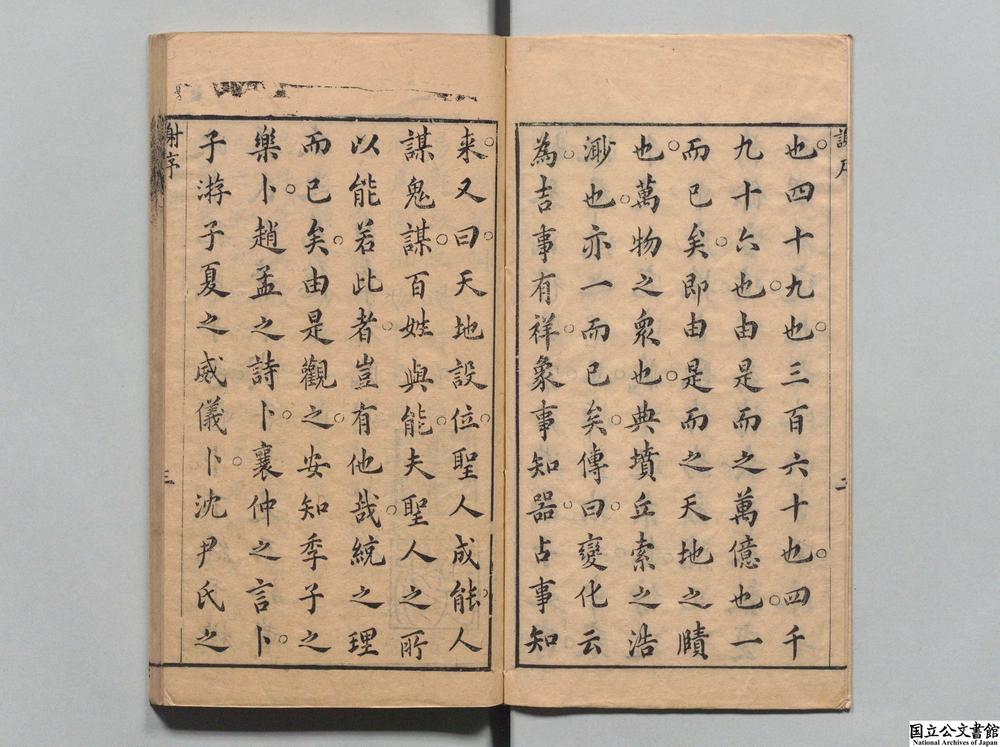 也四十九也三百六十也四千
九十六也由是而之萬億也一
而已矣即由是而之天地之賾
也萬物之衆也典墳丘索之浩
渺也亦一而已矣傳曰變化云
為吉事有祥象事知器占事知
二
来又曰天地設位聖人成能人
謀鬼謀百姓與能夫聖人之所
以能若此者豈有他哉統之理
而已矣由是觀之安知季子之
樂卜趙孟之詩卜襄仲之言卜
子游子夏之威儀卜沈尹氏之
謝序
三
国立公文書館
National Archives of Japan